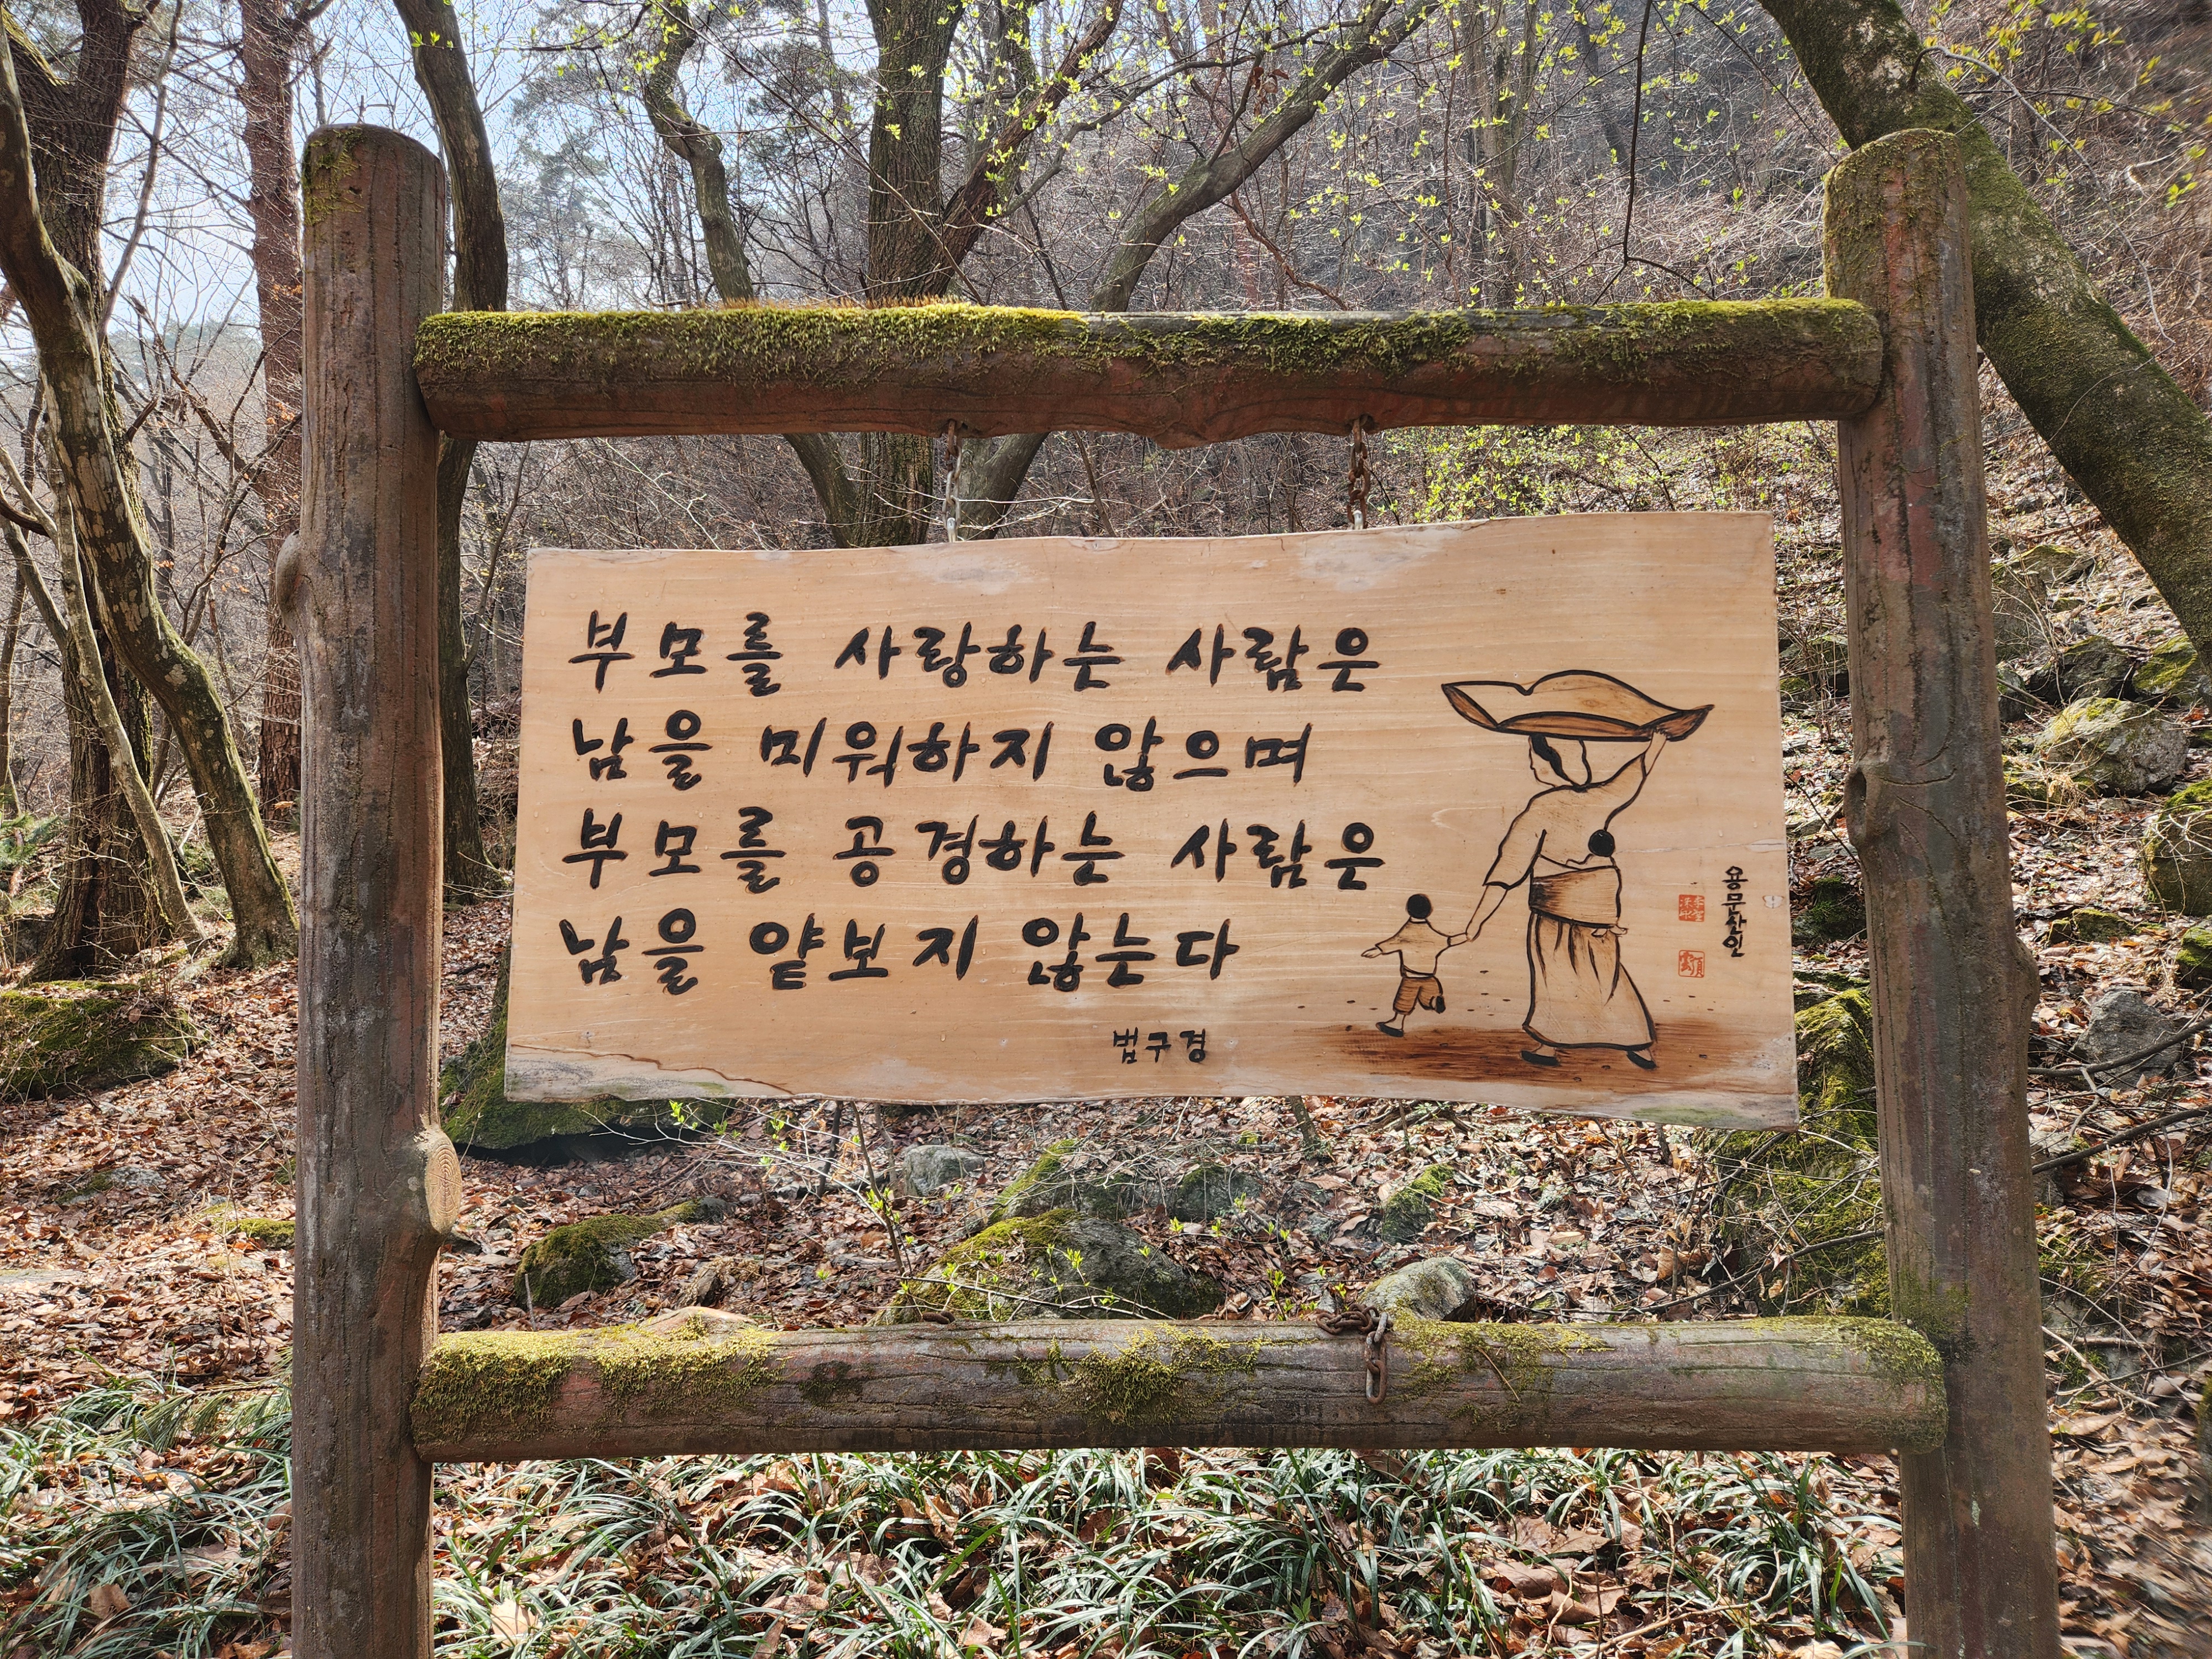 부모를 사랑하는 사람은
남을 미워하지 않으며
부모를 공경하는 사람은
남을 얕보지 않는다
법구경
용문산인